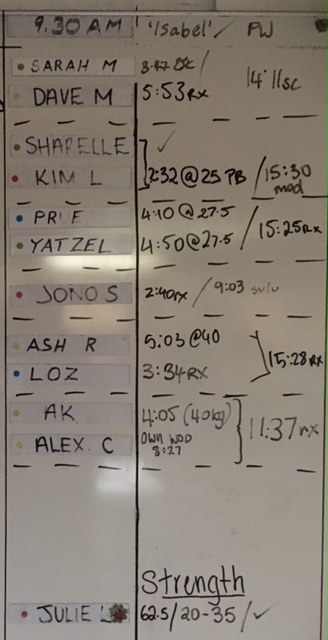 9.30 AM 'Isabel' / PW
SARAH M 3:42 SC /
DAVE M 5:53 RX 14:11sc
SHARELLE ✓
KIM L 2:32 @ 25 PB / 15:30 mod
PRUE 4:10 @ 27.5
YATZEL 4:50 @ 27.5 / 15:25 RX
JONO S 2:40rx / 9:03 solo
ASH R 5:03 @40
LOZ 3:34 RX 15:28 RX
AK 4:05 (40kg)
ALEX C OWN WOD 8:27 11:37 rx
Strength
JULIE L 62.5 / 20-35 / ✓